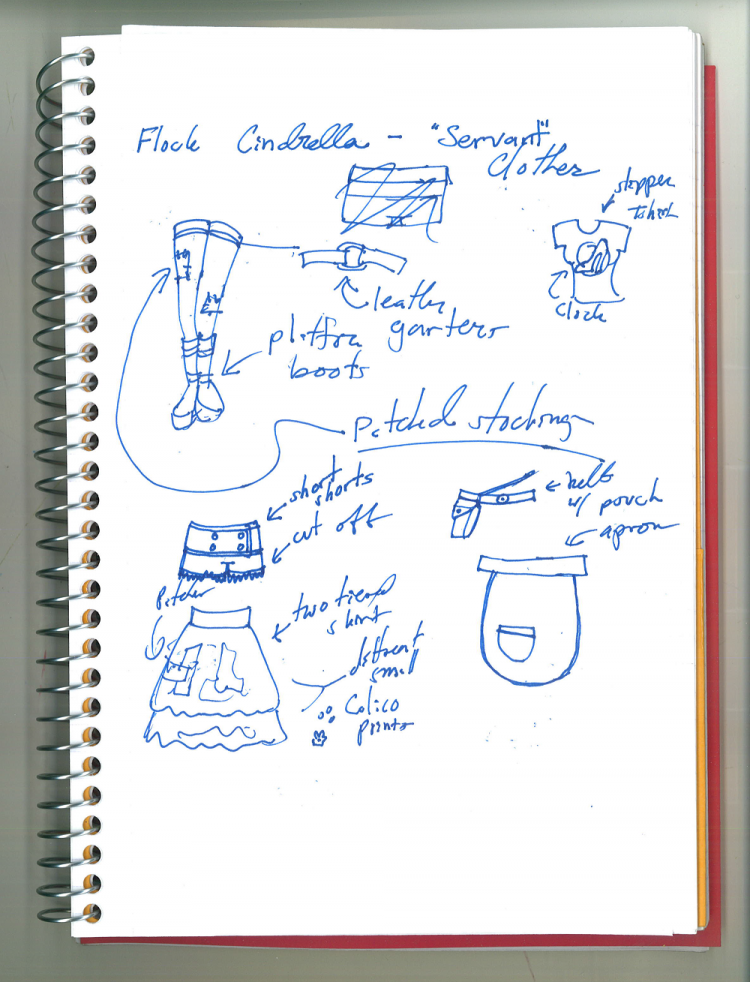 Flock Cindrella - "Servant"
Clothes
slipper
tshirt
clock
leather
garters
platfrm
boots
Patched stockings
short
shorts
cut off
belt
w/ pouch
apron
Patches
two tiered
skirt
different
small
Calico
prints